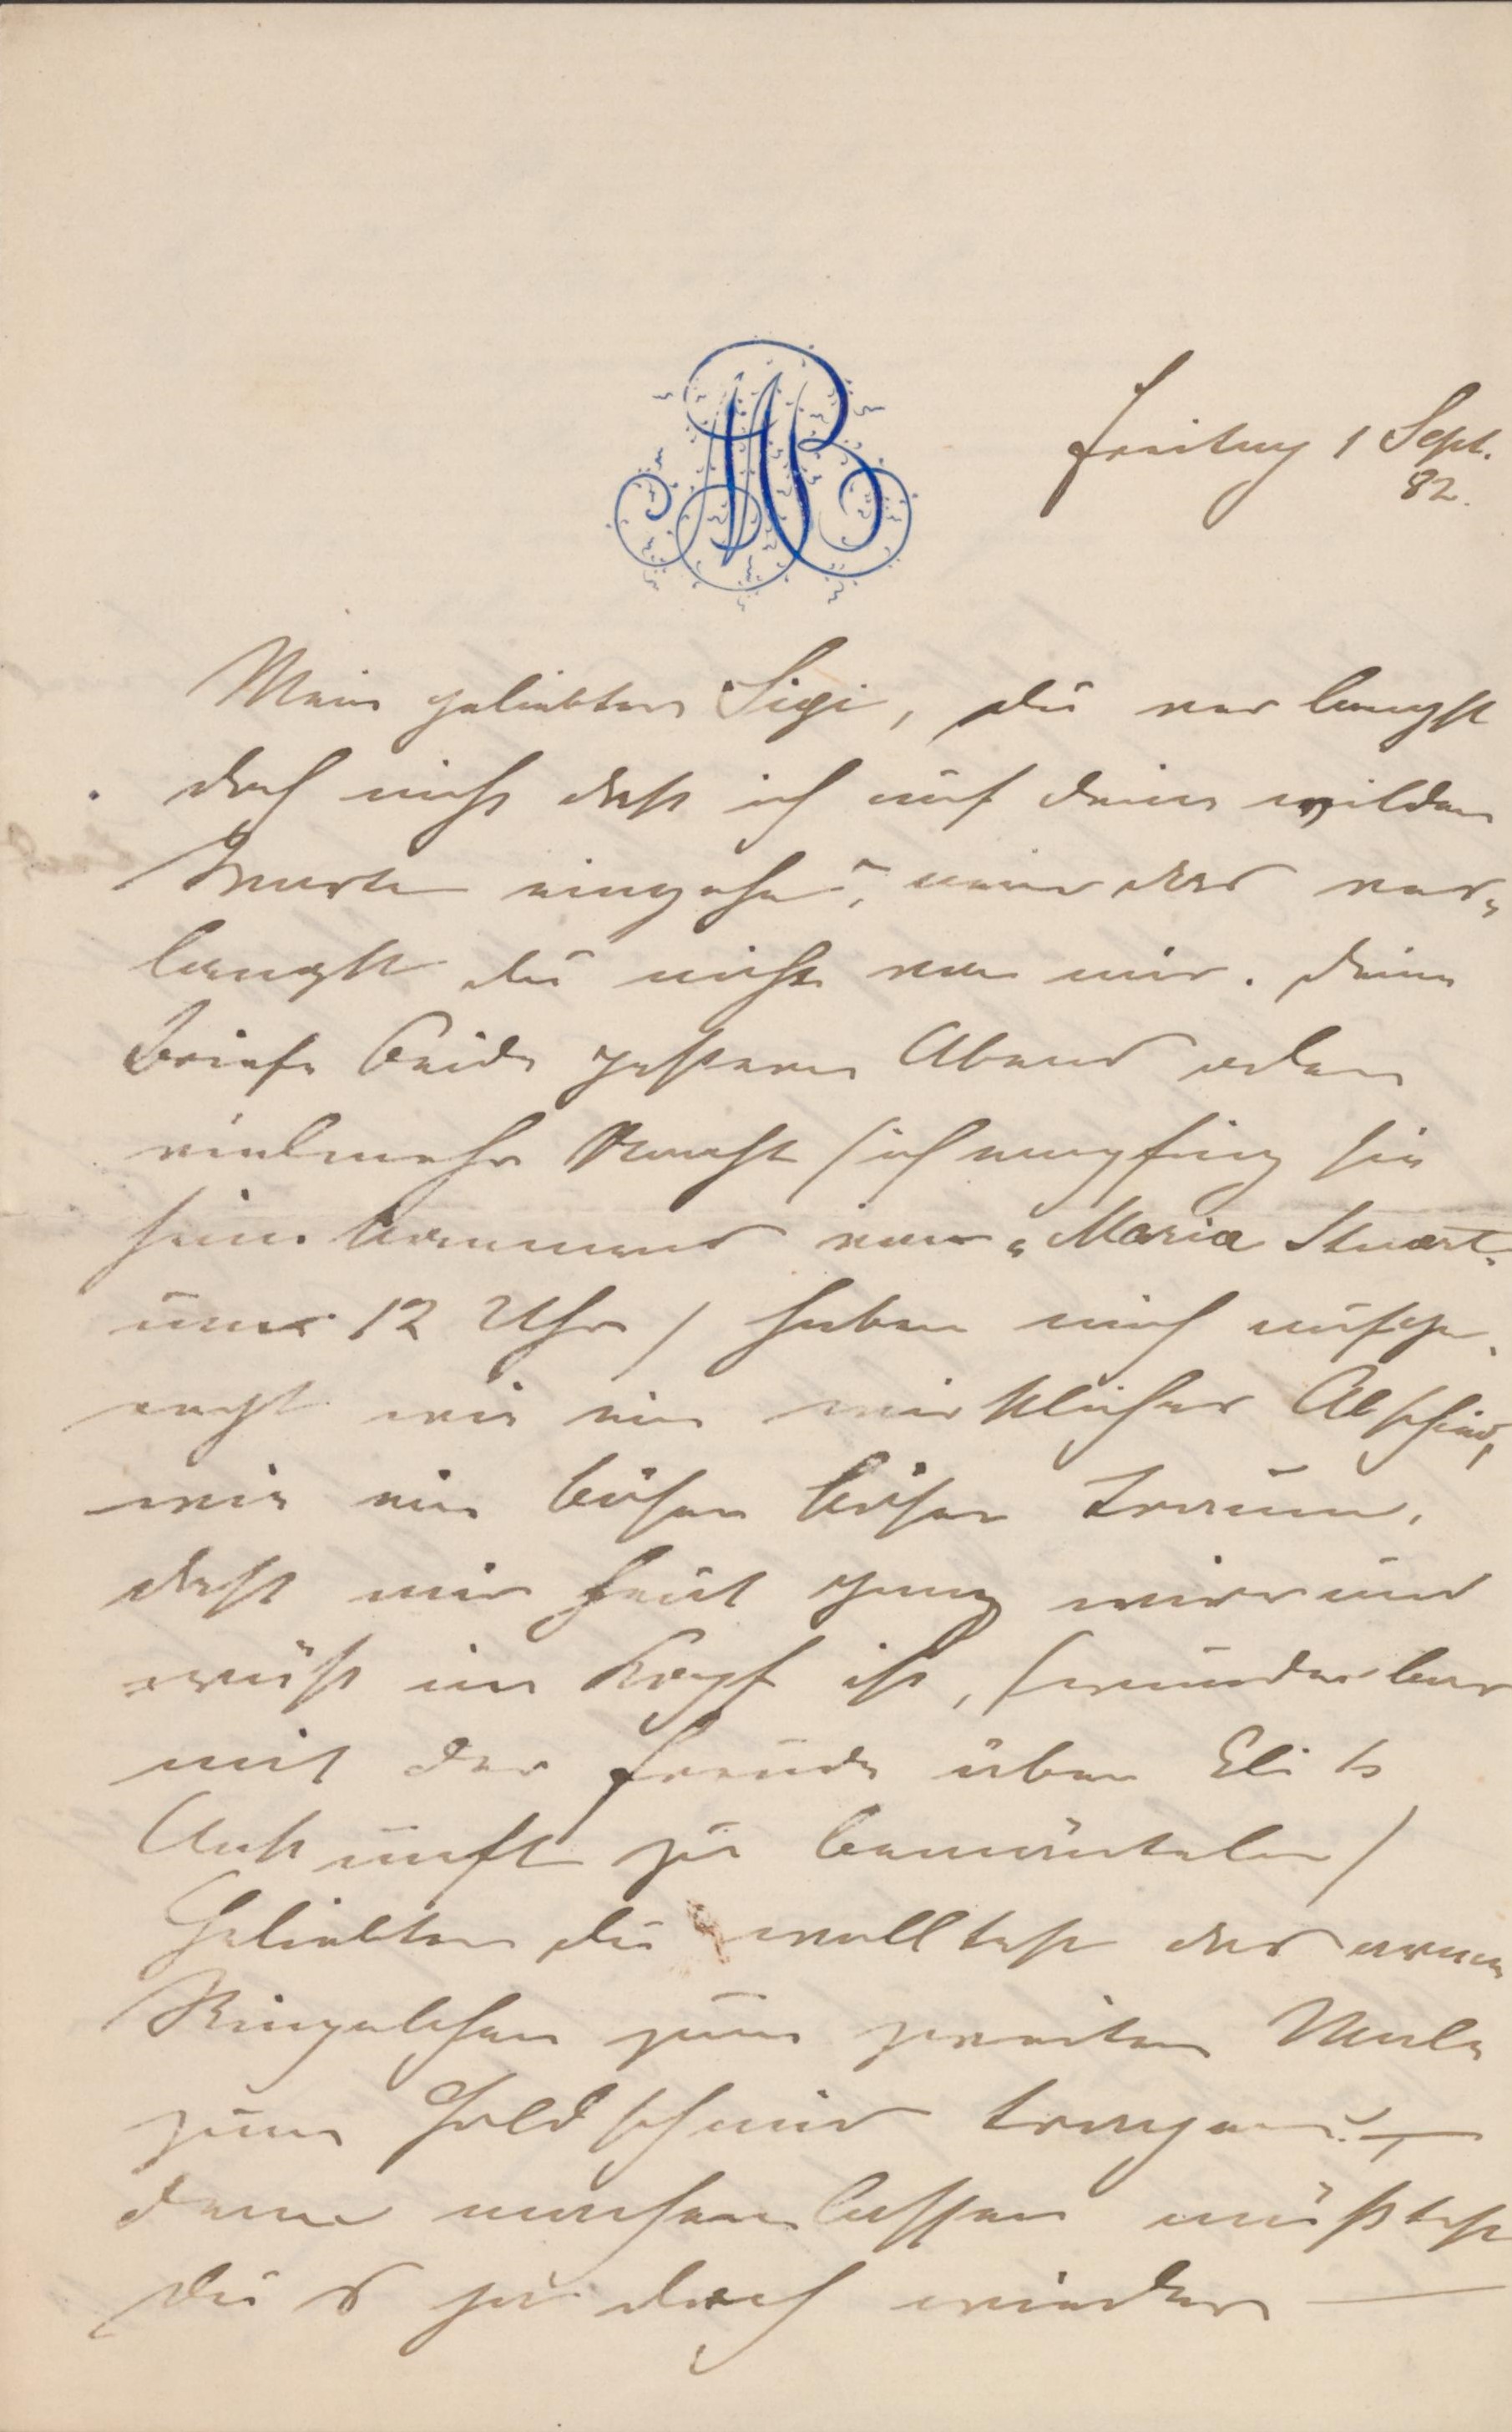 MB
Freitag 1 Sept.
82.
Mein geliebter Sigi, Du verlangst
doch nicht daß ich auf Deine wilden
Worte eingehe?, nein das ver-
langst Du nicht von mir. Deine
Briefe beide gestern Abend oder
vielmehr Nacht (ich empfing sie
heimkommend von „Maria Stuart"
um 12 Uhr) haben mich aufge-
regt wie ein wirklicher Abschied,
wie ein böser böser Traum,
daß mir heut ganz wirr und
wüst im Kopf ist, (wunderbar
mit der Freude über Eli's
Ankunft zu bemänteln)
Geliebter Du wolltest das arme
Ringelchen zum zweiten Male
zum Goldschmied tragen? —
denn machen lassen müßtest
Du's ja doch wieder —